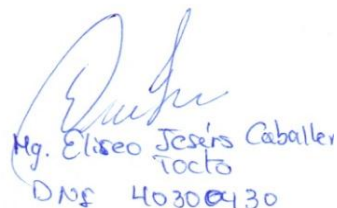 Mg. Eliseo Jesús Caballer
Tocto
DNI 40300430